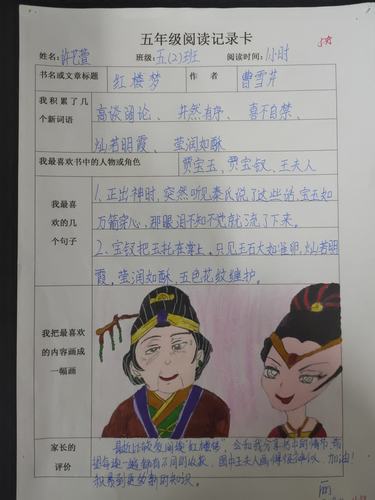 五年级阅读记录卡
姓名: 班级: 五(2)班 阅读时间: 1小时
书名或文章标题 红楼梦 作 者 曹雪芹
我积累了几个新词语
高谈阔论、井然有序、喜不自禁、
灿若明霞、莹润如酥
我最喜欢书中的人物或角色 贾宝玉、贾宝钗、王夫人
我最喜欢的几个句子
1.正出神时,突然听见秦氏说了这些话,宝玉如
万箭穿心,那眼泪不知不觉就流了下来。
2、宝钗把玉托在掌上。只见王石大如雀卵,灿若明
霞,莹润如酥、五色花纹缠护。
我把最喜欢的内容画成一幅画
家长的评价
最近比较爱阅读"红楼梦",会和我分享书中的情节,希
望每读一遍都有不同的收获。图中王夫人画得很 加油!